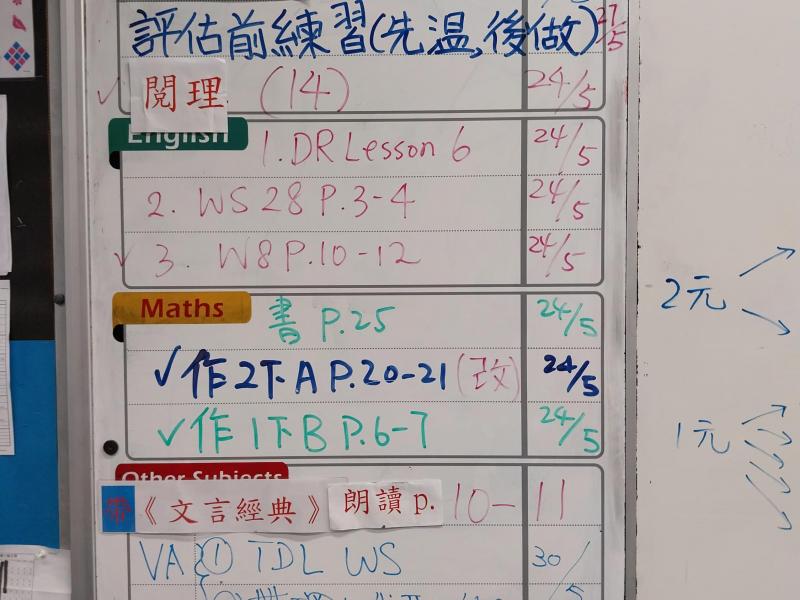 評估前練習(先温,後做) 27/5
✓ 閱理 (14) 24/5
English 1. DR Lesson 6 24/5
2. WS 28 P.3-4 24/5
✓ 3. W8 P.10-12 24/5
Maths 書 P.25 24/5
✓作2下A P.20-21(改) 24/5
✓作1下B P.6-7 24/5
Other Subjects
帶《文言經典》朗讀 p. 10-11
VA ① TDL WS 30/5
2元
1元